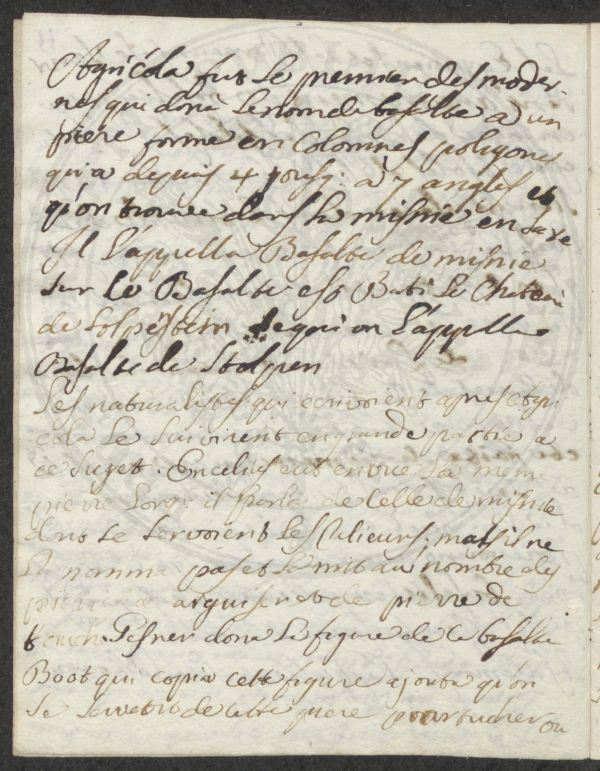 Agricola fut le premier des moder-
nes qui dona le nom de basalte a un
piere forme en colomnes polygones
qui a depuis 4 jusq: à 7 angles et
qu'on trouve dans la misnie en Saxe
Il l'appella Basalte de misnie
sur le Basalte est Bati le Chateau
de Stolpen
Basalte de Stolpen
les naturalistes qui ecrivoient apres Agri
cola le suivirent en grande partie a
ce suget. Encelius eut en vue la meme
pierre lorsq: il parla de celle de misnie
dont se servoient les ; mais il ne
la nomma pas et le mit au nombre des
pieres a arguiser et de pierre de
touche. Gesner dona la figure de la basalte
Boot qui copia cette figure ajouta qu'on
se servoit de cette piere pour ou